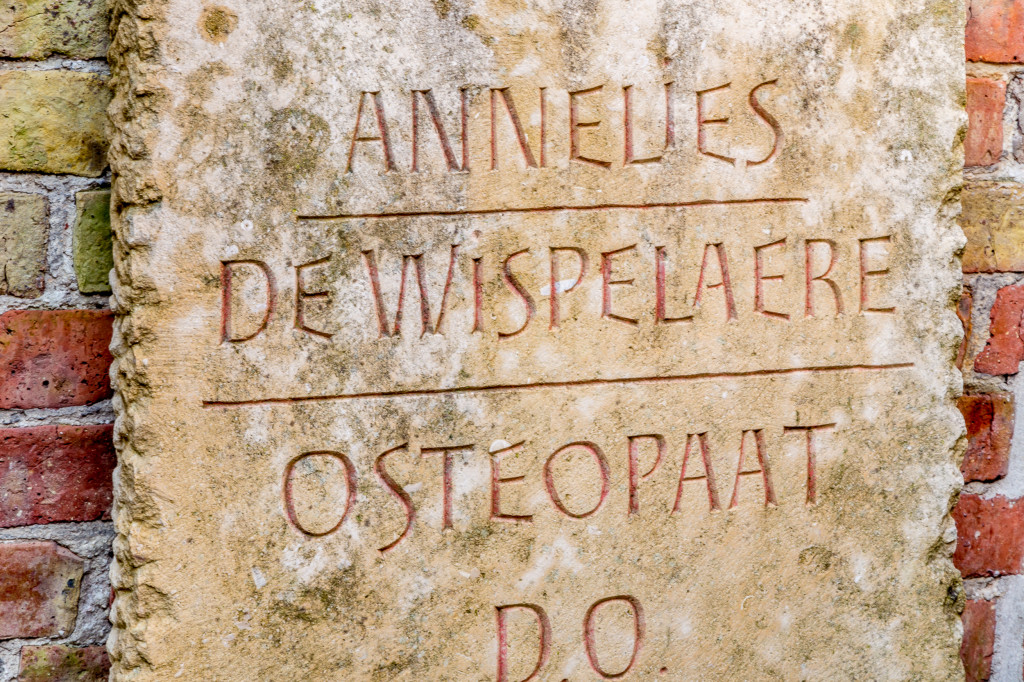 ANNELIES
DE WISPELAERE
OSTEOPAAT
D.O.